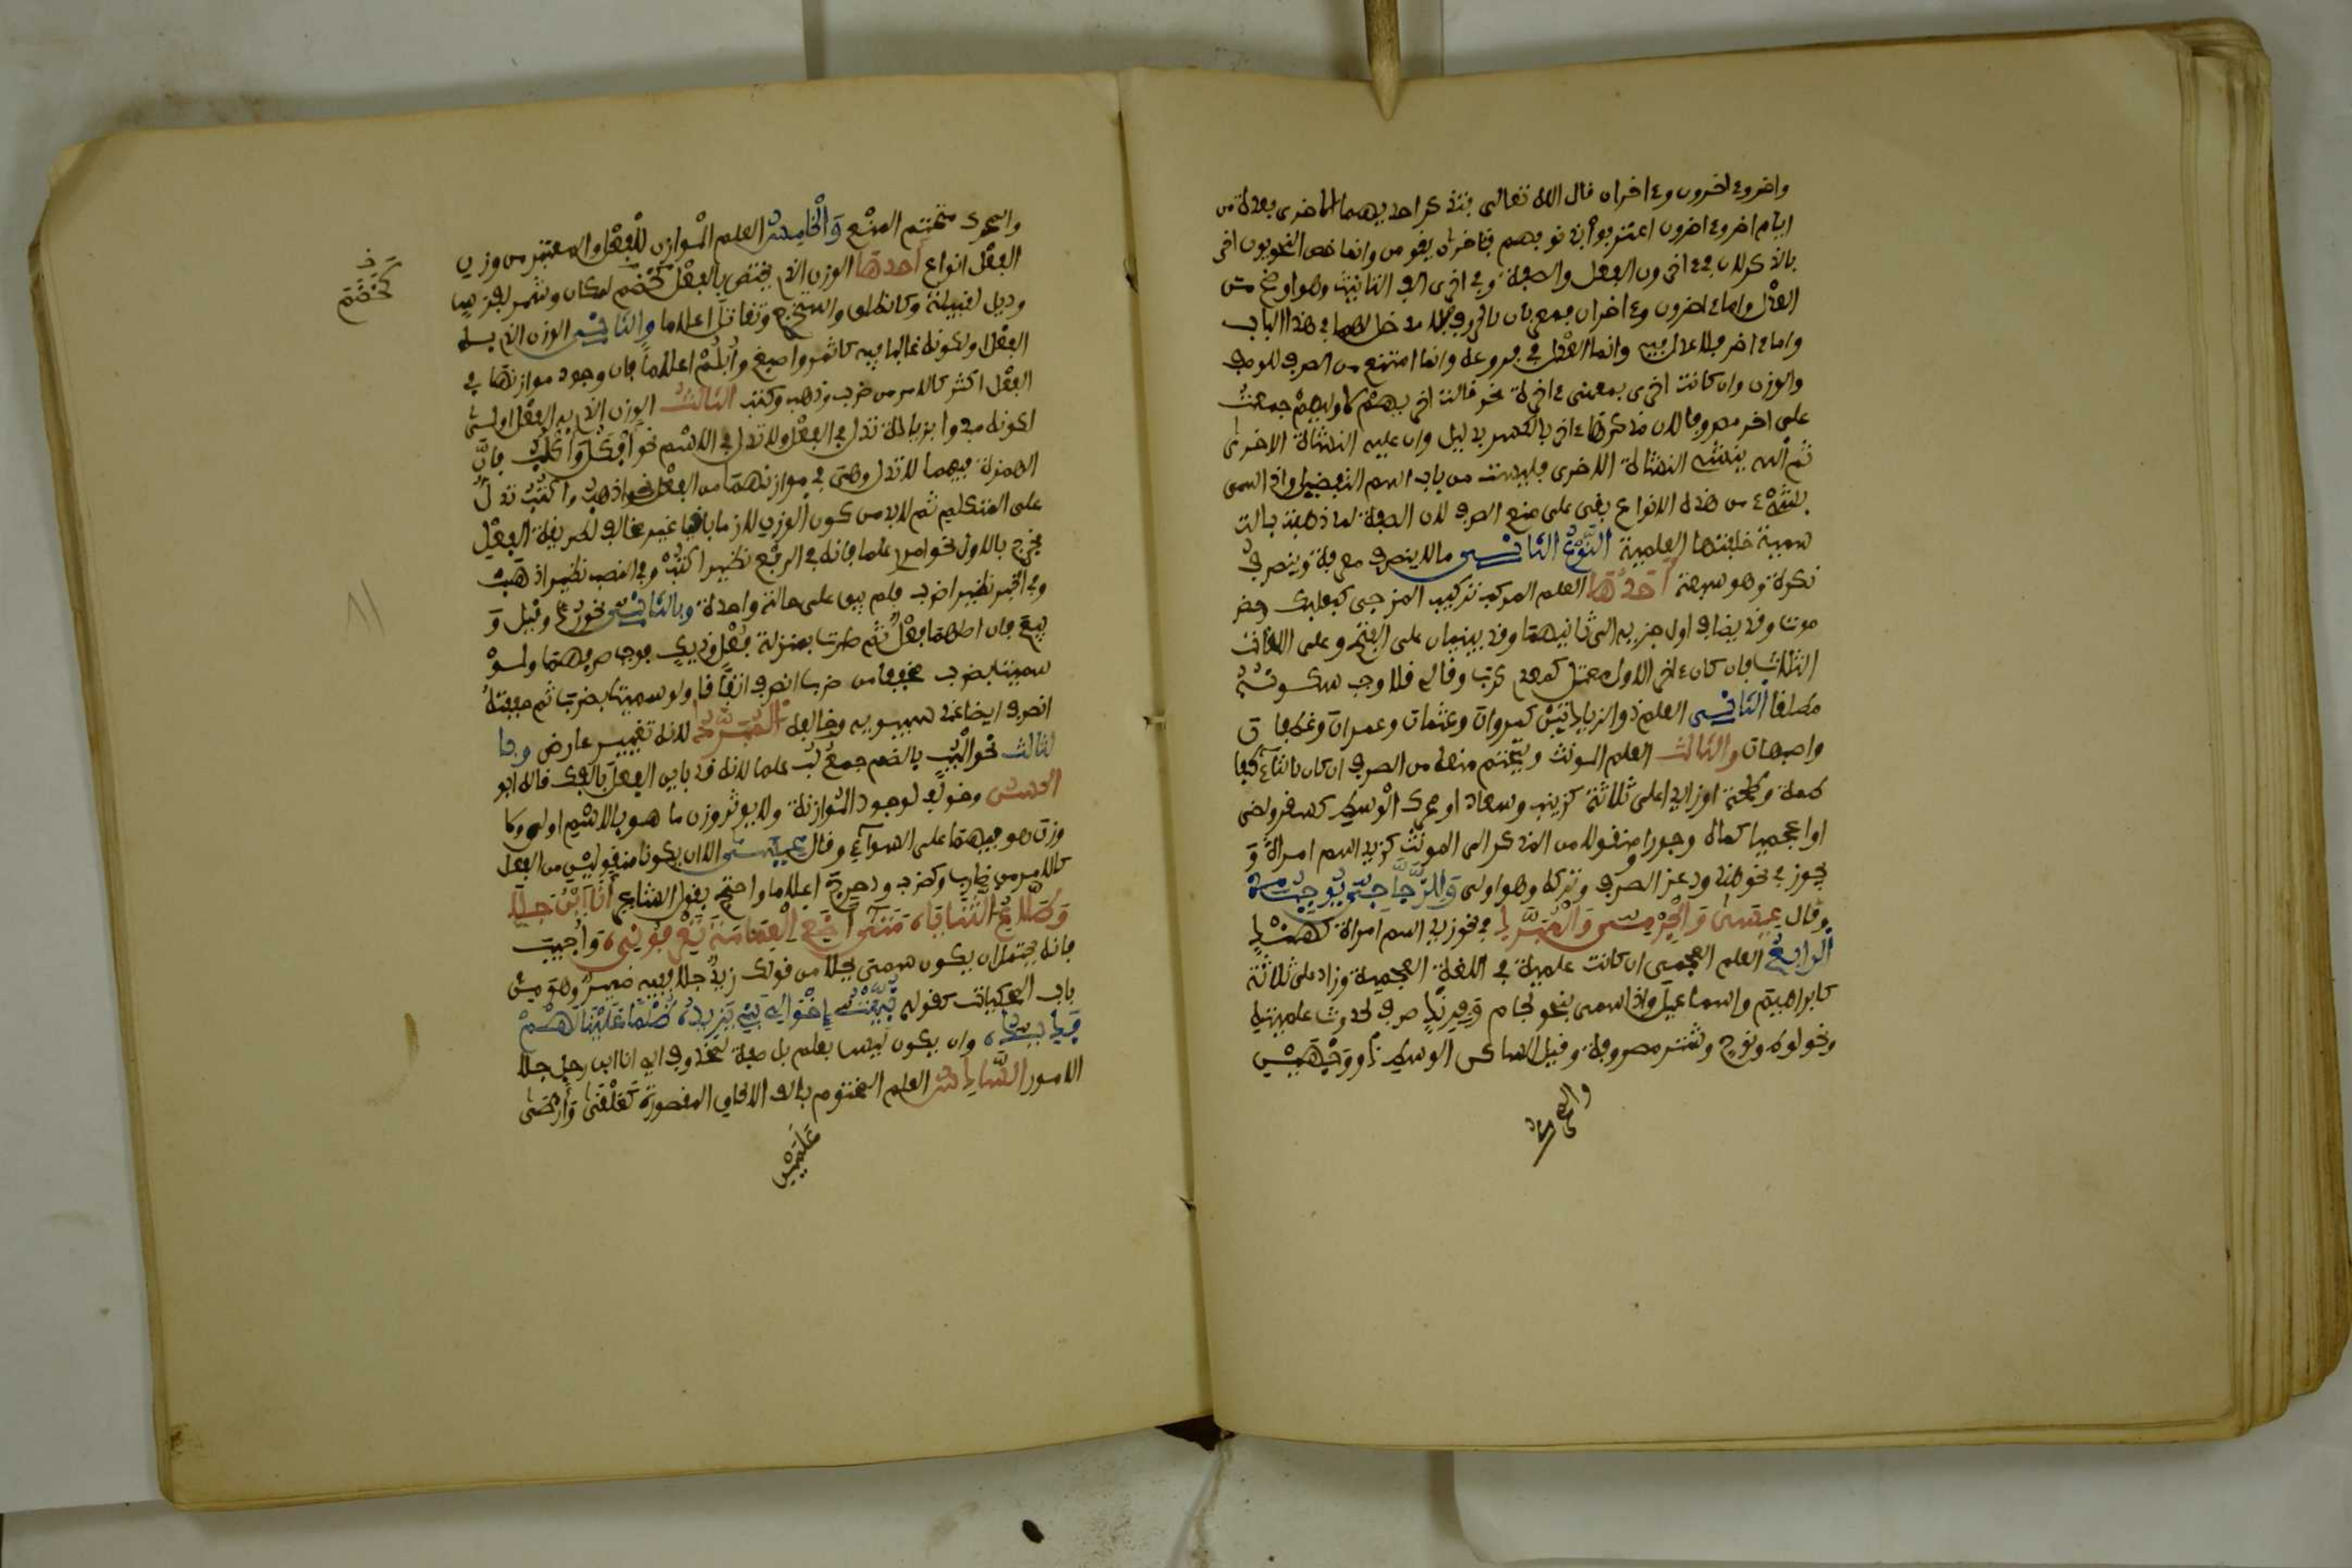 واخر واخرون واخران قال الله تعالى فتذكر احديهما الاخرى فعدة من
ايام اخر واخرون اعترفوا بذنوبهم فاخران يقومن وانما خص النحويون اخر
بالذكر لان في اخرون الفعل والصفة وفي اخرى الف التانيث وهو اوضح من
العدل واما اخرون واخران فمعربان بالحروف فلا مدخل لهما في هذا الباب
واما اخر فلا عدل فيه وانما العدل في فروعه وانما امتنع من الصرف للوصف
والوزن وان كانت اخرى بمعنى اخرة نحو قالت اخريهم لاوليهم جمعت
على اخر مصروفا لان مذكرها اخر بالكسر بدليل وان عليه النشاة الاخرى
ثم الله ينشئ النشاة الاخرى فليست من باب اسم التفضيل واذا سمى
بشيء من هذه الانواع بقي على منع الصرف لان الصفة لما ذهبت بالت
سمية خلفتها العلمية النوع الثاني ما لا ينصرف معرفة وينصرف
نكرة وهو سبعة احدها العلم المركب تركيب المزجى كبعلبك وحضر
موت وقد يضاف اول جزءيه الى ثانيهما وقد يبنيان على الفتح وعلى اللغات
الثلاث فان كان اخر الاول معتل كمعدي كرب وقالي قلا وجب سكونه
مطلقا الثاني العلم ذو الزيادتين كمروان وعثمان وعمران وغطفان
واصبهان والثالث العلم المونث ويتحتم منعه من الصرف ان كان بالتاء كفا
طمة وطلحة او زايد اعلى ثلاثة كزينب وسعاد او محرك الوسط كسقر ولظى
او اعجميا كماه وجور او منقولا من المذكر الى المونث كزيد اسم امراة و
يجوز في نحو هند ودعد الصرف وتركه وهو اولى والزجاجي يوجبه
وقال عيسى والجرمي والمبرد في نحو زيد اسم امراة كهند
الرابع العلم العجمي ان كانت علميته في اللغة العجمية وزاد على ثلاثة
كابراهيم واسماعيل واذا سمى بنحو لجام وفرند صرف لحدوث علميته
ونحو لوط ونوح وشتر مصروفة وقيل الساكن الوسط ذو وجهين
والمحرك
والمحرك متحتم المنع والخامس العلم الموازن للفعل والمعتبر من وزن
الفعل انواع احدها الوزن الذي يختص بالفعل كخضم لمكان وشمر لفرس
وديل لقبيلة وكانطلق واستخرج وتقاتل اعلاما والثاني الوزن الذي به
الفعل اولى لكونه غالبا فيه كاثمد واصبع وابلم اعلاما فان وجود موازنها في
الفعل اكثر كالامر من ضرب وذهب وكتب الثالث الوزن الذي به الفعل اولى
لكونه مبدوا بزيادة تدل في الفعل ولا تدل في الاسم نحو افكل واكلب فان
الهمزة فيهما لا تدل وهي في موازنهما من الفعل نحو اذهب واكتب تدل
على المتكلم ثم لابد من كون الوزن لازما باقيا غير مخالف لطريقة الفعل
فخرج بالاول نحو امرء علما فانه في الرفع نظير اكتب وفي النصب نظير اذهب
وفي الجر نظير اضرب فلم يبق على حالة واحدة وبالثاني نحو رد وقيل و
بيع فان اصلها فعل ثم صارت بمنزلة قفل وديك فوجب صرفهما ولو
سميت بضرب مخففا من ضرب انصرف اتفاقا ولو سميت بضرب ثم خففته
انصرف ايضا عند سيبويه وخالفه المبرد لانه تغيير عارض وبا
لثالث نحو البب بالضم جمع لب علما لانه قد باين الفعل بالفك قاله ابو
الحسن وخولف لوجود الموازنة ولا يوثر وزن ما هو بالاسم اولى ولا
وزن هو فيهما على السواء وقال عيسى الا ان يكونا منقولين من الفعل
كالامر من ضارب وكضرب ودحرج اعلاما واحتج بقول الشاعر انا ابن جلا
وطلاع الثنايا متى اضع العمامة تعرفوني واجيب
فانه يحتمل ان يكون سمي بجلا من قولك زيد جلا ففيه ضمير وهو من
باب المحكيات كقوله نبئت اخوالي بني يزيد ظلما علينا لهم
فديد وان يكون ليس بعلم بل صفة لمحذوف اي انا ابن رجل جلا
الامور السادس العلم المختوم بالف الالحاق المقصورة كعلقى وارطى
علمين
كخضم